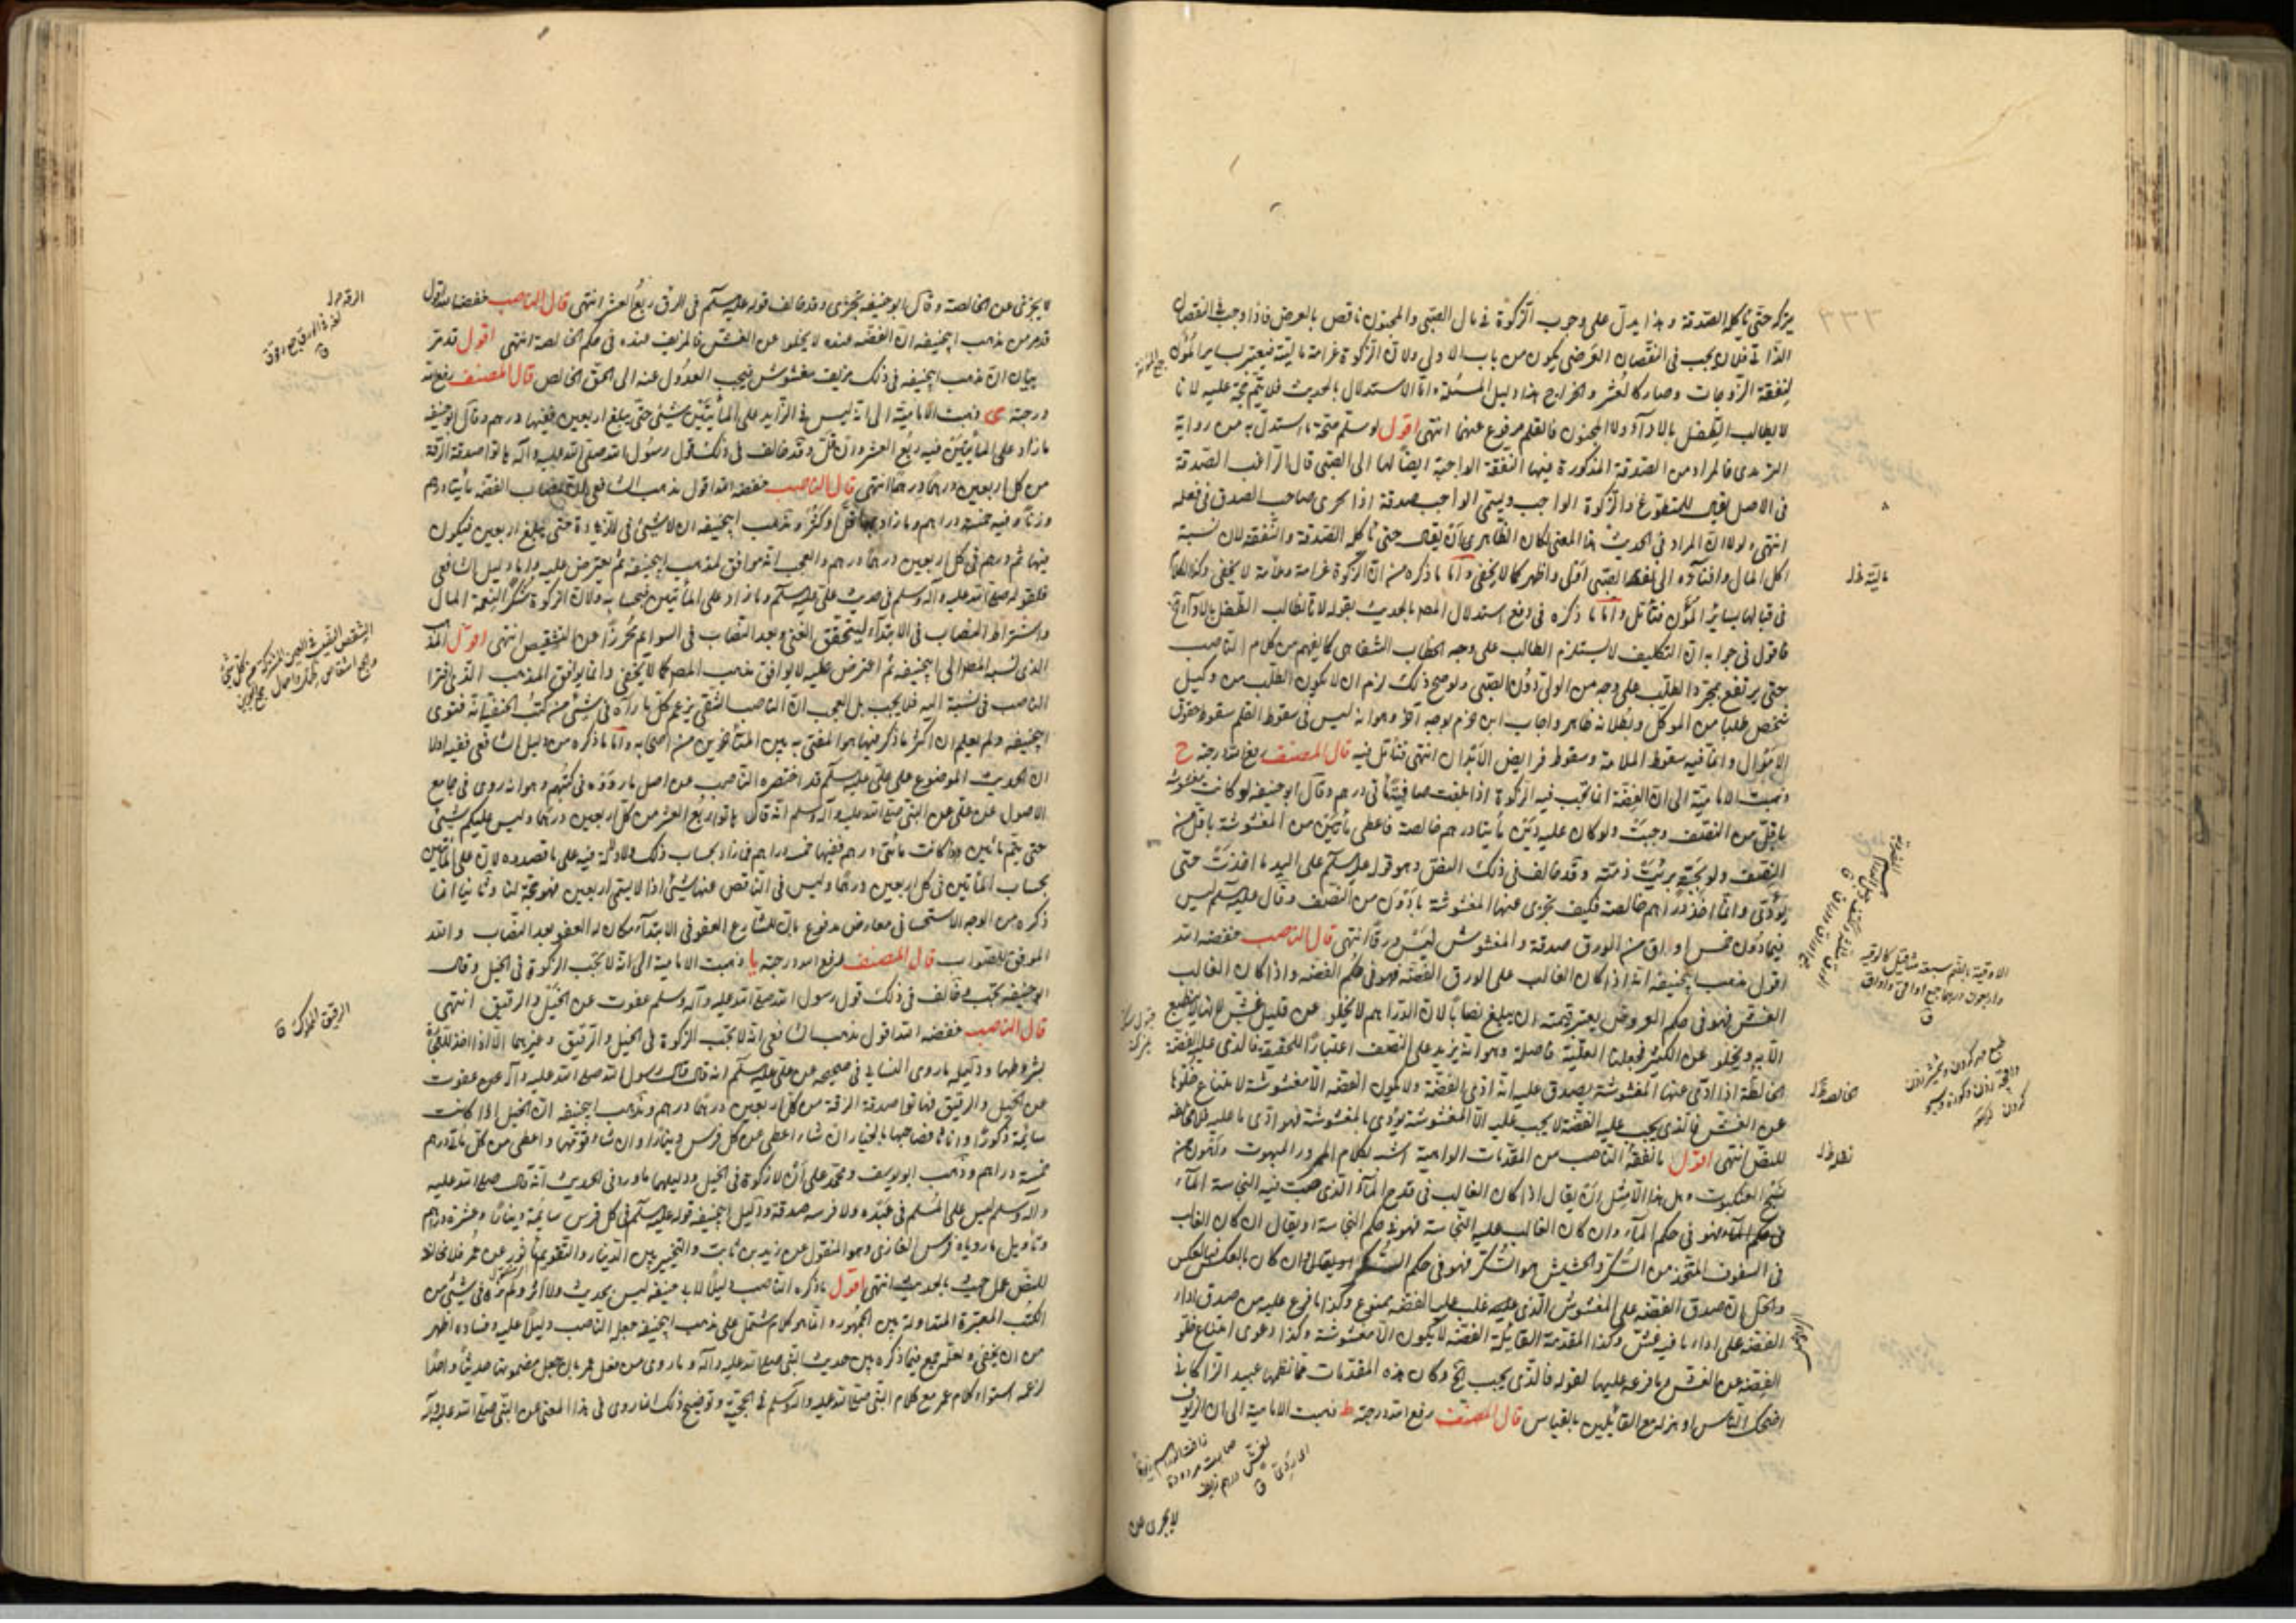 يترك حتى تأكله الصدقة وهذا يدل على وجوب الزكوة في مال الصبي والمجنون ناقص بالعرض فاذا وجب في النقصان
الذاتي فلان يجب في النقصان العرضي يكون من باب الاولى ولان الزكوة غرامة مالية فيعتبر بساير المؤن
لنفقة الزوجات وصار كالعشر والخراج هذا دليل المسئلة واما الاستدلال بالحديث فلا يتم حجة عليه لانا
لا نطالب الطفل بالاداء ولا المجنون فالقلم مرفوع عنهما انتهى اقول لو سلم صحة ما استدل به من رواية
الترمذي فالمراد من الصدقة المذكورة فيها النفقة الواجبة ايضا لها الى الصبي قال الراغب الصدقة
في الاصل يقال للمتطوع والزكوة الواجب ويسمى الواجب صدقة اذا تحرى صاحب الصدق في فعله
انتهى ولولا ان المراد في الحديث هذا المعنى لكان الظاهر ان يقال حتى تأكله الصدقة والنفقة لان نسبة
اكل المال وافنائه الى نفقة الصبي اولى واظهر كما لا يخفى واما ما ذكره من ان الزكوة غرامة وعلامة لا يخفى
في قبالها بساير المؤن فتأمل واما ما ذكره في دفع استدلال المصر بالحديث بقوله لانا نطالب الطفل بالاداء
فاقول في جوابه ان التكليف لا يستلزم الطالب على وجه الخطاب الشفاهي كما يفهم من كلام الناصب
حتى يرتفع بمجرد الطلب على وجه من الولي دون الصبي ولو صح ذلك لزم ان لا يكون الطلب من وكيل
شخص طلبا من الموكل وبطلانه ظاهر واجاب ابن حزم بوجه آخر وهو انه ليس في سقوط القلم سقوط حقوق
الاموال وانما فيه سقوط الملامة وسقوط فرايض الابدان انتهى فتأمل فيه قال المصنف رفع الله درجته ح
ذهبت الامامية الى ان الفضة انما تجب فيه الزكوة اذا بلغت صافيتا مأتي درهم وقال ابو حنيفة لو كانت مغشوشة
باقل من النصف وجبت ولو كان عليه دين مأيتا درهم خالصة فاعطى مأتين من المغشوشة باقل من
النصف ولو حبة برئت ذمته وقد خالف في ذلك النص وهو قوله عليه السلم على اليد ما اخذت حتى
يؤدى وانما اخذ دراهم خالصة فكيف تجزى عنها المغشوشة بادون من النصف وقال عليه السلم ليس
فيما دون خمس اواق من الورق صدقة والمغشوش ليس ورقا انتهى قال الناصب خفضه الله
اقول مذهب ابيحنيفة انه اذا كان الغالب على الورق الفضة فهو في حكم الفضة واذا كان الغالب
الغش فهو في حكم العروض يعتبر قيمته ان يبلغ نصابا لان الدراهم لا يخلو عن قليل غش لانها لا ينطبع
الا به ويخلو عن الكثير فجعلنا الغلبة فاصلة وهو انه يزيد على النصف اعتبارا للحقيقة فالذي عليه الفضة
الخالصة اذا ادى عنها المغشوشة يصدق عليه انه ادى الفضة ولا يكون الفضة الا مغشوشة لامتناع خلوها
عن الغش فالذي يجب عليه الفضة لا يجب عليه الا المغشوشة فيؤدى بالمغشوشة فهو ادى ما عليه فلا مخالفة
للنص انتهى اقول ما لفقه الناصب من المقدمات الواهية اشبه بكلام المحرور المبهوت واهون من
نسج العنكبوت وهل هذا الا مثل ان يقال اذا كان الغالب في قدح الماء الذي صبت فيه النجاسة الماء
في حكم الماء فهو في حكم الماء وان كان الغالب عليه النجاسة فهو في حكم النجاسة او يقال ان كان الغالب
في السفوف المتخذ من السكر والحشيش هو السكر فهو في حكم السكر وان كان بالعكس فبالعكس
والحل ان صدق الفضة على المغشوش الذي غلب عليه الفضة ممنوع وكذا ما فرع عليه من صدق اداء
الفضة على اداء ما فيه غش وكذا المقدمة القائلة الفضة لا يكون الا مغشوشة وكذا دعوى امتناع خلو
الفضة عن الغش وما فرعه عليها لقوله فالذي يجب الخ وكان هذه المقدمات مما نظمها عبيد الزاكاني
اضحك الناس او هزله مع القائلين بالقياس قال المصنف رفع الله درجته ط ذهبت الامامية الى ان الزيوف
لا يجزى عن
مالية خ ل
الخالصة خ ل
الاوقية بالضم سبعة مثاقيل كالوقية
واربعون درهما جمع اواقي واواق
ق
لا يجزى عن الخالصة وقال ابو حنيفة تجزى وقد خالف قوله عليه السلم في الرق ربع العشر انتهى قال الناصب خفضه الله اقول
قد مر من مذهب ابيحنيفة ان الفضة عنده لا يخلوا عن الغش فالمزيف عنده في حكم الخالصة انتهى اقول قد مر
بيان ان مذهب ابيحنيفة في ذلك مزيف مغشوش فيجب العدول عنه الى الحق الخالص قال المصنف رفع الله
درجته ى ذهبت الامامية الى انه ليس في الزايد على المأتين شيئ حتى يبلغ اربعين ففيها درهم وقال ابو حنيفة
ما زاد على المأتين فيه ربع العشر وان قل وقد خالف في ذلك قول رسول الله صلى الله عليه وآله هاتوا صدقة الرقة
من كل اربعين درهما درهما انتهى قال الناصب خفضه الله اقول مذهب الشافعي ان نصاب الفضة مأيتا درهم
وزنا وفيه خمسة دراهم وما زاد قل او كثر ومذهب ابيحنيفة ان لا شيئ في الزيادة حتى يبلغ اربعين فيكون
فيها ثم درهم في كل اربعين درهما درهم والعجب انه موافق لمذهب ابيحنيفة ثم يعترض عليه واما دليل الشافعي
فلقوله صلى الله عليه وآله وسلم في حديث علي عليه السلم وما زاد على المأتين فبحسابه ولان الزكوة شكر النعمة المال
واشتراط النصاب في الابتداء ليتحقق الغنى وبعد النصاب في السوايم تحرزا عن التشقيص انتهى اقول المذهب
الذي نسبه المصر الى ابيحنيفة ثم اعترض عليه لا يوافق مذهب المصر كما لا يخفى وانما يوافق المذهب الذي افترا
الناصب في نسبة اليه فلا يجب بل العجب ان الناصب الشقي يزعم كل ما رآه في شيئ من كتب الحنفية انه فتوى
ابيحنيفة ولم يعلم ان اكثر ما ذكر فيها هو المفتى به بين المتأخرين من اصحابه واما ما ذكره من دليل الشافعي ففيه اولا
ان الحديث الموضوع على علي عليه السلم قد اختصره الناصب من اصل ما رووه في كتبهم وهو انه روى في جامع
الاصول عن علي عن النبي صلى الله عليه وآله وسلم انه قال هاتوا ربع العشر من كل اربعين درهما وليس عليكم شيئ
حتى يتم مائتين فاذا كانت مائتي درهم ففيها خمسة دراهم فما زاد بحساب ذلك ولا دلالة فيه على ما قصده لان على المأتين
بحساب المأتين في كل اربعين درهما وليس في الناقص عنها شيئ اذا لا يسمى اربعين فهو حجة لنا وثانيا انما
ذكره من الوجه الاستحسا في معارض مدفوع بان للشارع العفو في الابتداء فكان له العفو بعد النصاب والله
الموفق للصواب قال المصنف رفع الله درجته يا ذهبت الامامية الى انه لا تجب الزكوة في الخيل وقال
ابو حنيفة تجب وخالف في ذلك قول رسول الله صلى الله عليه وآله وسلم عفوت عن الخيل والرقيق انتهى
قال الناصب خفضه الله اقول مذهب الشافعي انه لا تجب الزكوة في الخيل والرقيق وغيرهما الا اذا اتخذ للتجارة
بشروطها ودليله ما روى النسائي في صحيحه عن علي عليه السلم انه قال قال رسول الله صلى الله عليه وآله عفوت
عن الخيل والرقيق فهاتوا صدقة الرقة من كل اربعين درهما درهم ومذهب ابيحنيفة ان الخيل اذا كانت
سائمة ذكورا واناثا فصاحبها بالخيار ان شاء اعطى عن كل فرس دينارا وان شاء قومها واعطى من كل مائة درهم
خمسة دراهم وذهب ابو يوسف ومحمد على ان لا زكوة في الخيل ودليلهما ما ورد في الحديث انه قال صلى الله عليه
وآله وسلم ليس على المسلم في عبده ولا فرسه صدقة ودليل ابيحنيفة قوله عليه السلم في كل فرس سايمة دينارا وعشرة دراهم
وتأويل ما روياه فرس الغازي وهو المنقول عن زيد بن ثابت والتخيير بين الدينار والتقويم مأثور عن عمر فلا مخالفة
للنص عمل حيث بالحديث انتهى اقول ما ذكره الناصب دليلا لابي حنيفة ليس بحديث ولا اثر ولم نره في شيئ من
الكتب المعتبرة المتداولة بين الجمهور وانما هو كلام مشتمل على مذهب ابيحنيفة جعله الناصب دليلا عليه وفساده اظهر
من ان يخفى ولعله جمع فيما ذكره بين حديث النبي صلى الله عليه وآله وما روى من فعل عمر بان جعل مضمونهما حديثا واحدا
لزعمه استواء كلام عمر مع كلام النبي صلى الله عليه وآله وسلم في الحجية وتوضيح ذلك انما روى في هذا المعنى عن النبي صلى الله عليه وآله
الرقيق المملوك ق